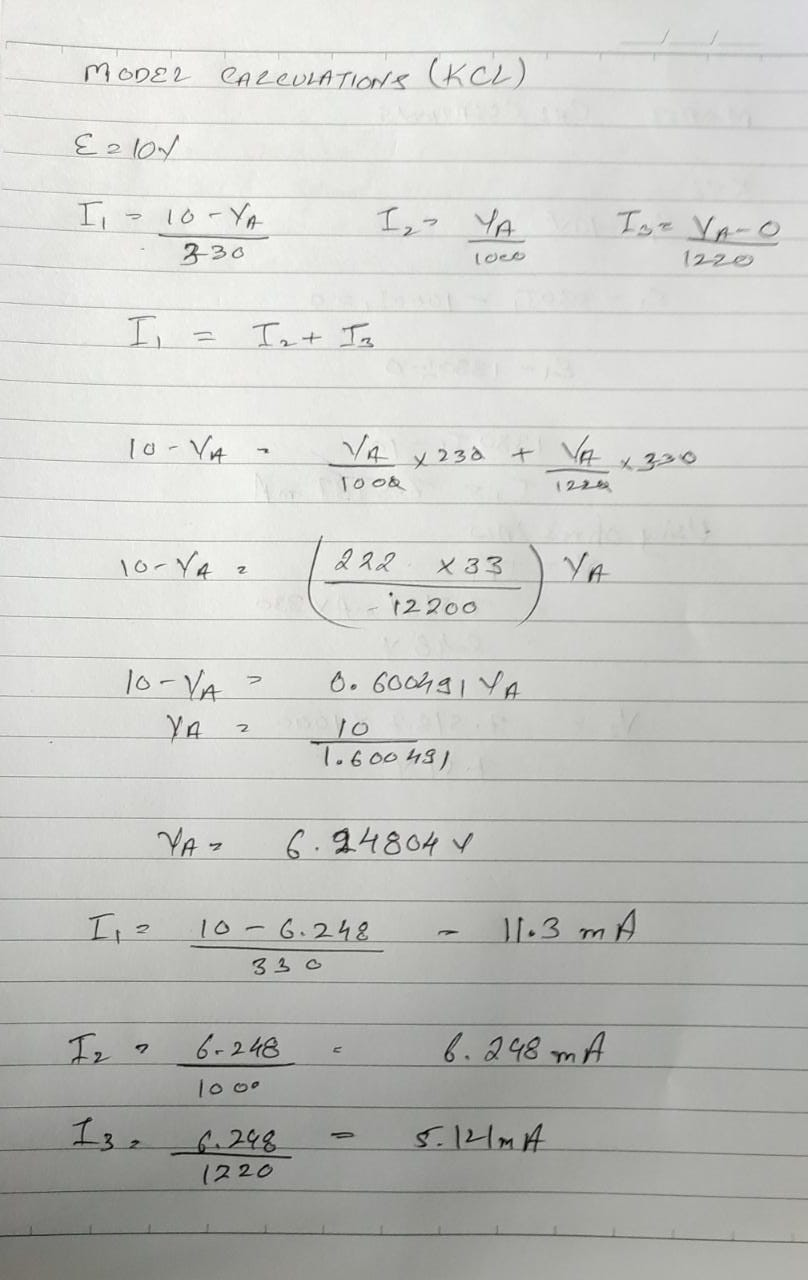 MODEL CALCULATIONS (KCL)
Ɛ = 10V
I₁ = 10 - VA / 330 I₂ = VA / 1000 I₃ = VA - 0 / 1220
I₁ = I₂ + I₃
10 - VA = VA / 1000 × 230 + VA / 1220 × 330
10 - VA = (222 × 33 / 12200) VA
10 - VA = 0.600491 VA
VA = 10 / 1.600491
VA = 6.24804 V
I₁ = 10 - 6.248 / 330 = 11.3 mA
I₂ = 6.248 / 1000 = 6.248 mA
I₃ = 6.248 / 1220 = 5.121mA